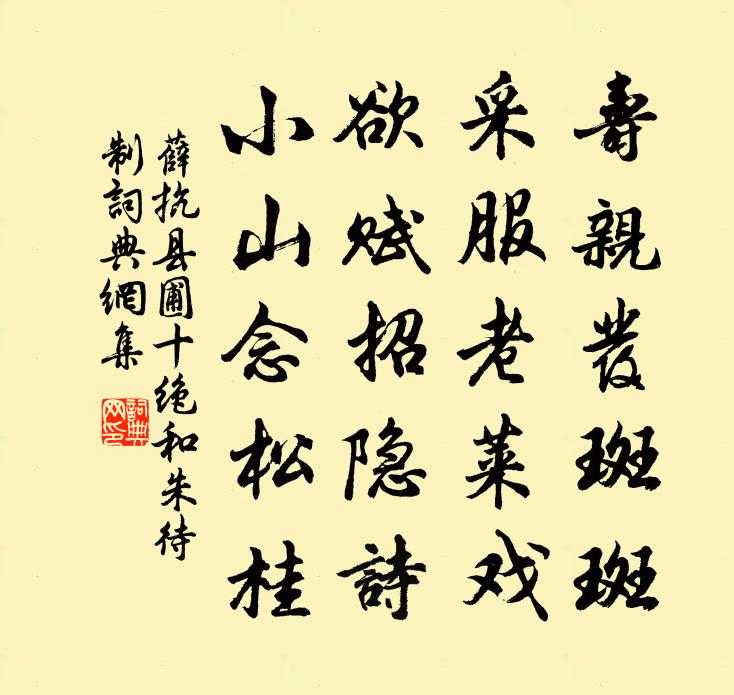 壽親髮斑斑
采服老莱戏
欲赋招隐詩
小山念松桂
薛抗县圃十绝和朱待
制詞典網集
詞典网印